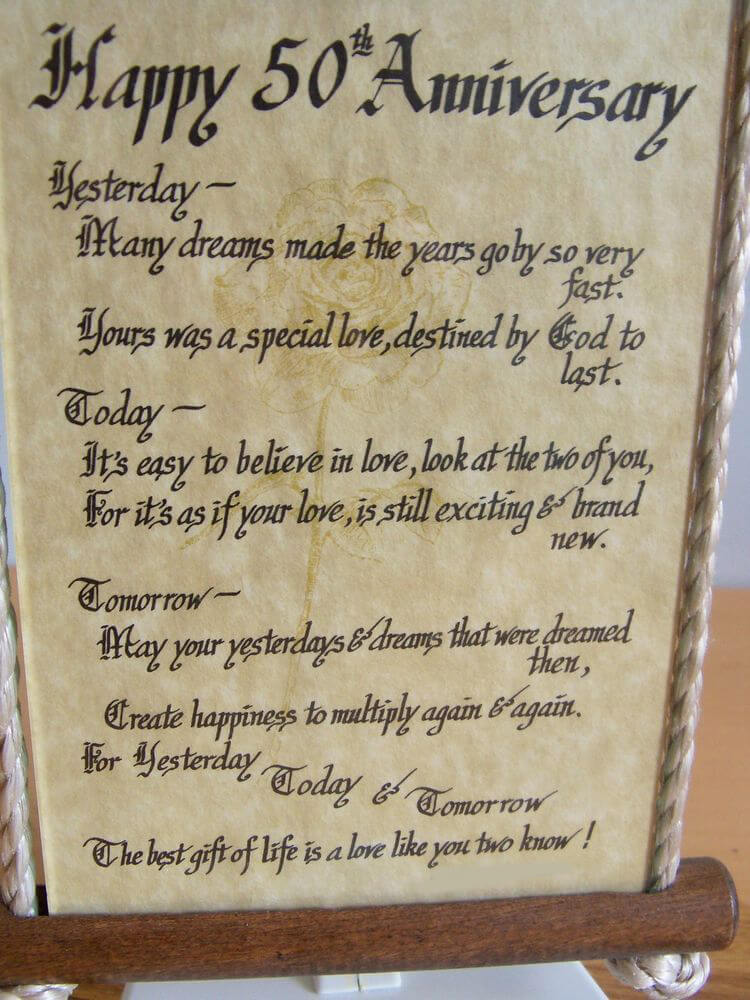 Happy 50th Anniversary
Yesterday —
Many dreams made the years go by so very
fast.
Yours was a special love, destined by God to
last.
Today —
It's easy to believe in love, look at the two of you,
For it's as if your love, is still exciting & brand
new.
Tomorrow —
May your yesterdays & dreams that were dreamed
then,
Create happiness to multiply again & again.
For Yesterday Today & Tomorrow
The best gift of life is a love like you two know!